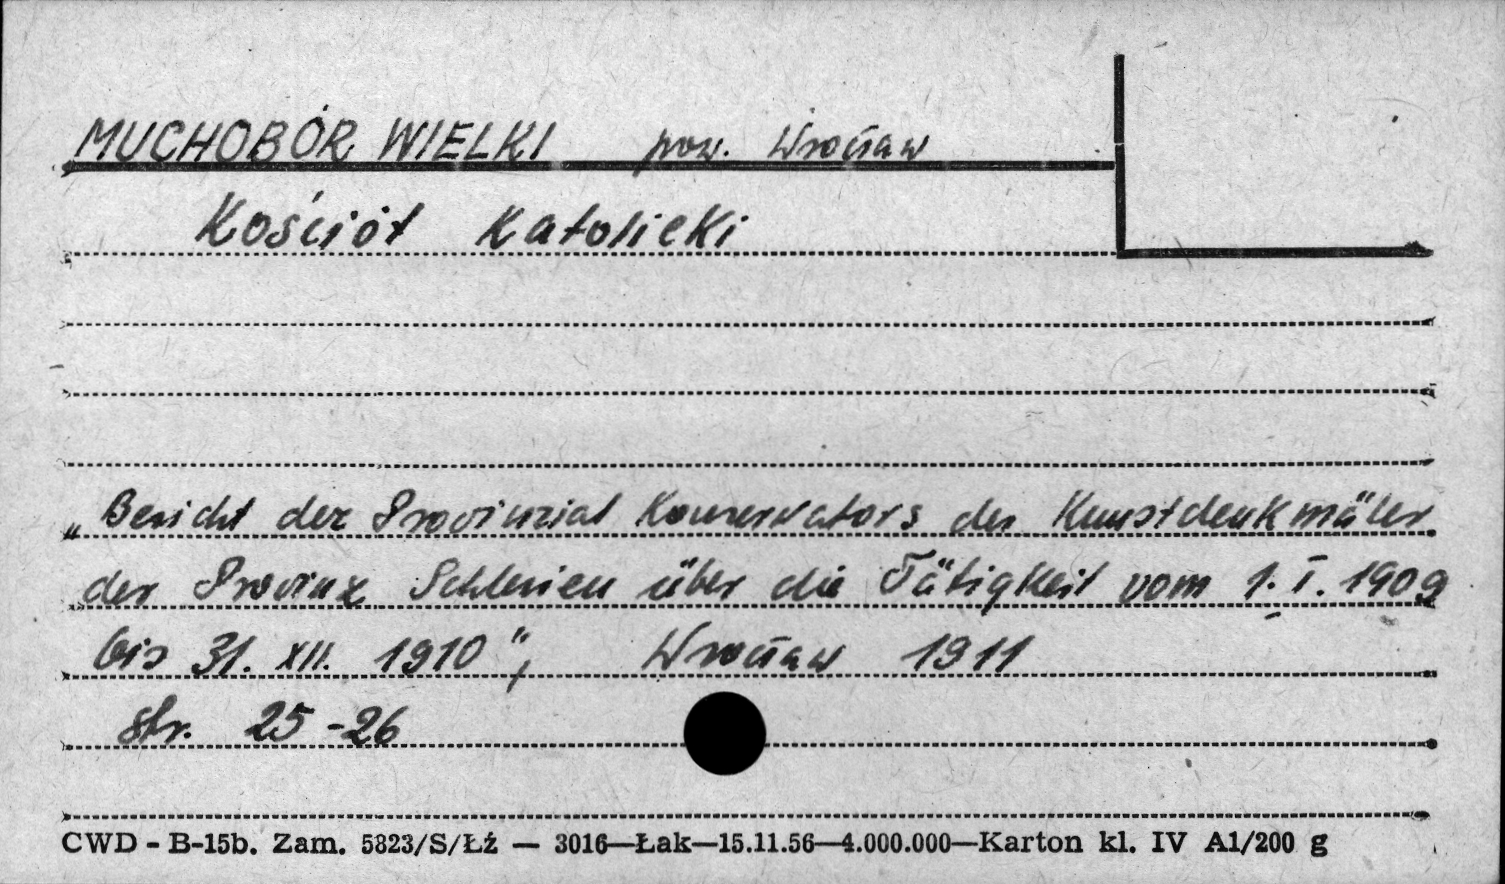 MUCHOBÓR WIELKI pow. Wrocław
Kościół Katolicki
„Bericht der Provinzial Konservators der Kunstdenkmäler
der Provinz Schlesien über die Tätigkeit vom 1.I.1909
bis 31. XII. 1910", Wrocław 1911
str. 25-26
CWD - B-15b. Zam. 5823/S/Łź — 3016—Łak—15.11.56—4.000.000—Karton kl. IV A1/200 g